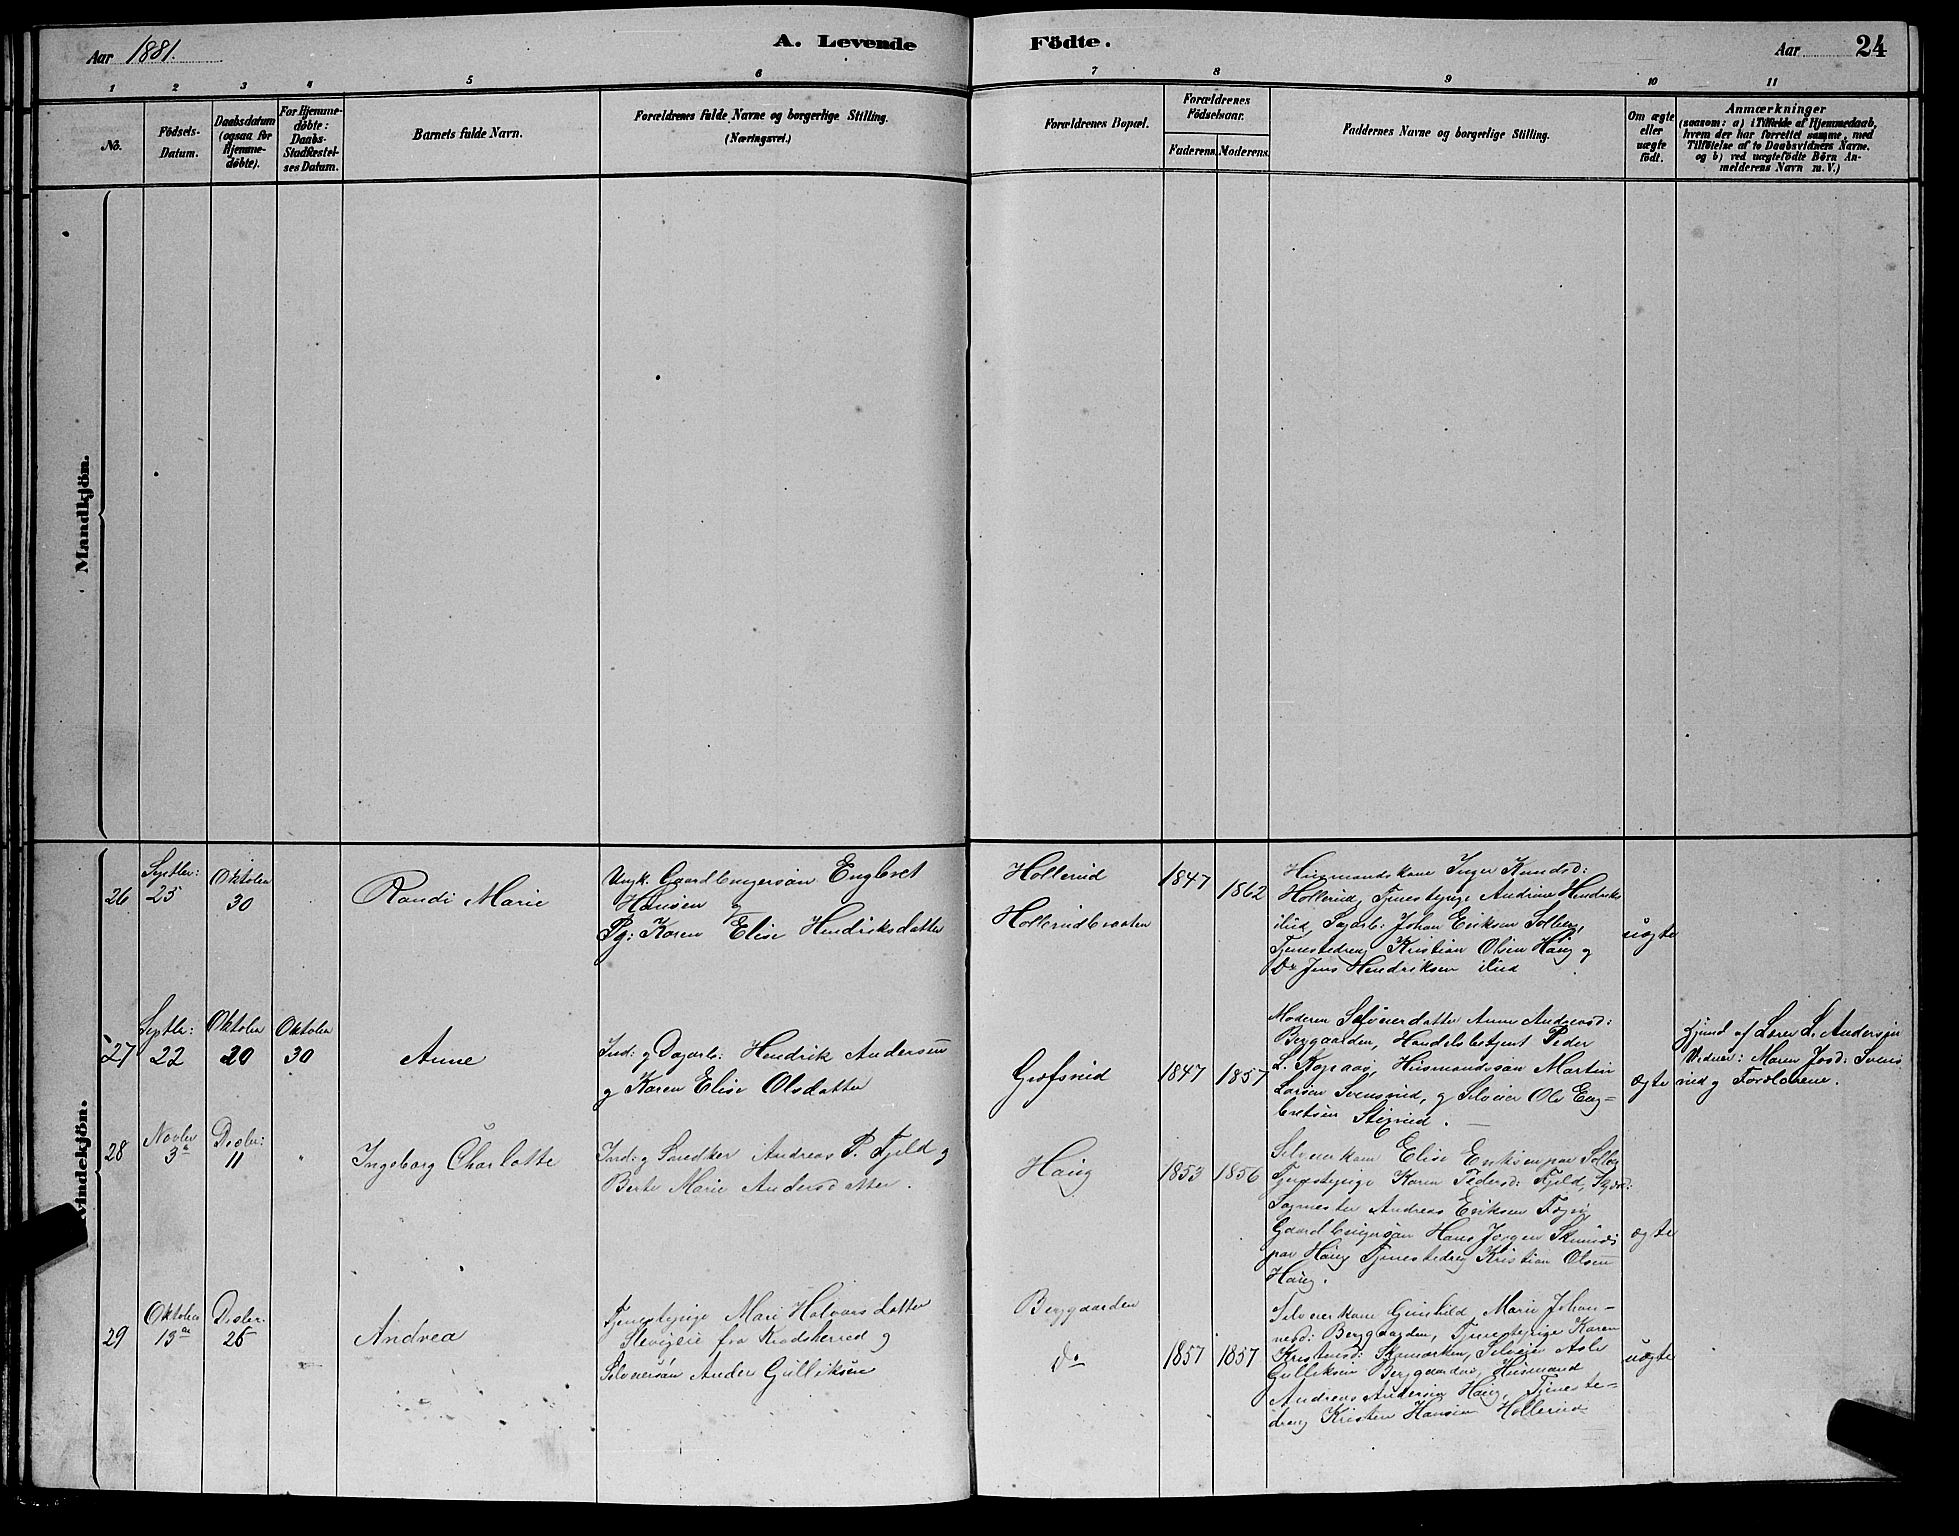 Aar 1881.
A. Levende
Födte.
Aar
24
1 2 3 4 5 6
7 8 9 10 11
No.
Födsels-
Datum.
Daabsdatum
(ogsaa for
Hjemme-
döbte).
For Hjemme-
döbte:
Daabs-
Stadfæstel-
ses Datum.
Barnets fulde Navn.
Forældrenes fulde Navne og borgerlige Stilling.
(Næringsvei.)
Forældrenes Bopæl.
Forældrenes
Födselsaar.
Faderens.
Moderens.
Faddernes Navne og borgerlige Stilling.
Om ægte
eller
uægte
födt.
Anmærkninger
(saasom: a) i Tilfælde af Hjemmedaab,
hvem der har forrettet samme, med
Tilföielse af to Daabsvidners Navne.
og b) ved uægtefödte Börn An-
melderens Navn m. V.)
Mandkjön.
Kvindekjön.
26
Septbr:
25
Oktober
30
Randi Marie
Ungk. Gaardbrugersøn Engbret
Hansen og
Pg: Karen Elise Hendriksdatter
Hollerud
Hollerudbraaten
1847
1862
Husmandskone Inger Knudsd:
Hollerud, Tjenestepige Andrine Hendriks
ilid, Sagarb: Johan Eriksen Solberg,
Tjenestedreng Kristian Olsen Haug og
Do Jens Hendriksen ilid
uægte
27
Septbr:
22
Oktober
20
Oktober
30
Anne
Ind: og Dagarb: Hendrik Andersen
og Karen Elise Olsdatter
Grøfsrud
1847
1857
Moderen Selveierdatter Anne Andreasd:
Berggaarden, Handelsbetjent Peder
L. Kopaas, Husmandssøn Martin
Larsen Svensrud, og Selveier Ole Eng-
bretsen Stiverud.
Ægte
Hjemd af Lærer L. Andersen
Vidner: Maren Josd: Svens
rud og Forældrene.
28
Novbr
3die
Decbr:
11
"
Ingeborg Charlotte
Ind: og Snedker Andreas P. Fjeld og
Berte Marie Andersdatter.
Haug
1853
1856
Selveierkone Elise Eriksen paa Solberg
Tjenestepige Karen Pedersd: Fjeld,
Sagmester Andreas Eriksen
Gaardbrugersøn Hans Jørgen
paa Haug Tjenestedreng Kristian Olsen
Haug.
ægte
29
Oktober
13de
Decbr.
26
Andrea
Tjenestepige Mari Halvorsdatter
fra Krødsherred og
Selveiersøn Anders Gulliksen
Berggaarden
do
1857
1857
Selveierkone Gunhild Marie Johan-
nesd: Berggaarden, Tjenestepige Karen
Kristensd: Skjimarken, Selveier Asle
Gulliksen Berggaarden, Husmand
Andreas Andersen Haug, Tjeneste-
dreng Kristen Hansen Hollerud
uægte